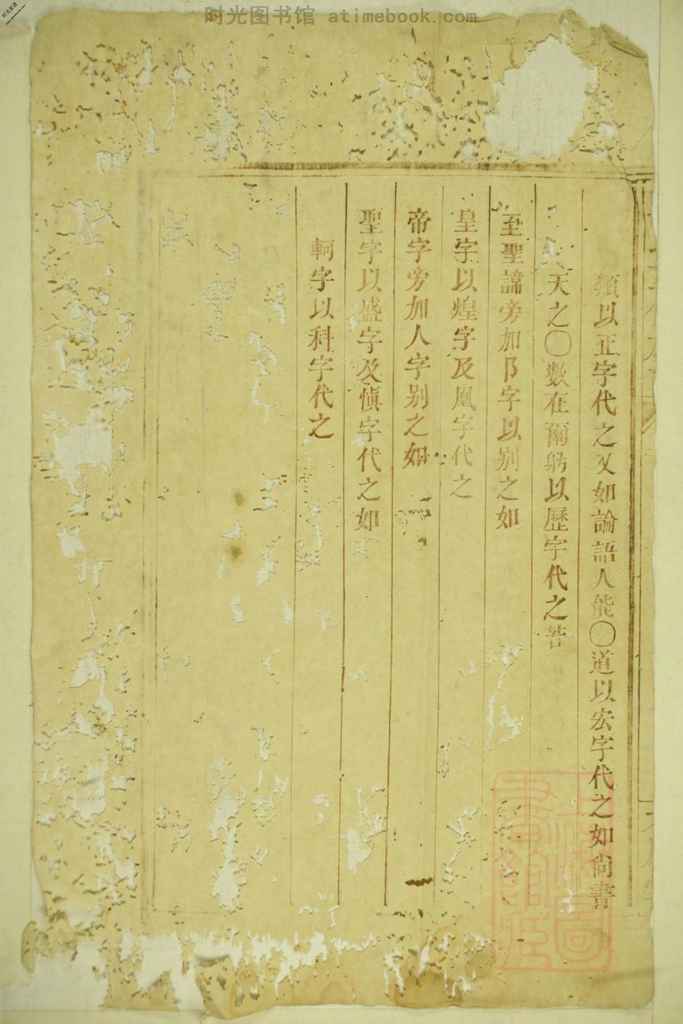 时光图书馆 atimebook.com
類以正字代之又如論語人能〇道以宏字代之如尙書
天之〇數在爾躬以歷字代之若
至聖諱旁加阝字以别之如
皇字以煌字及凰字代之
帝字旁加人字别之如
聖字以盛字及愼字代之如
軻字以科字代之